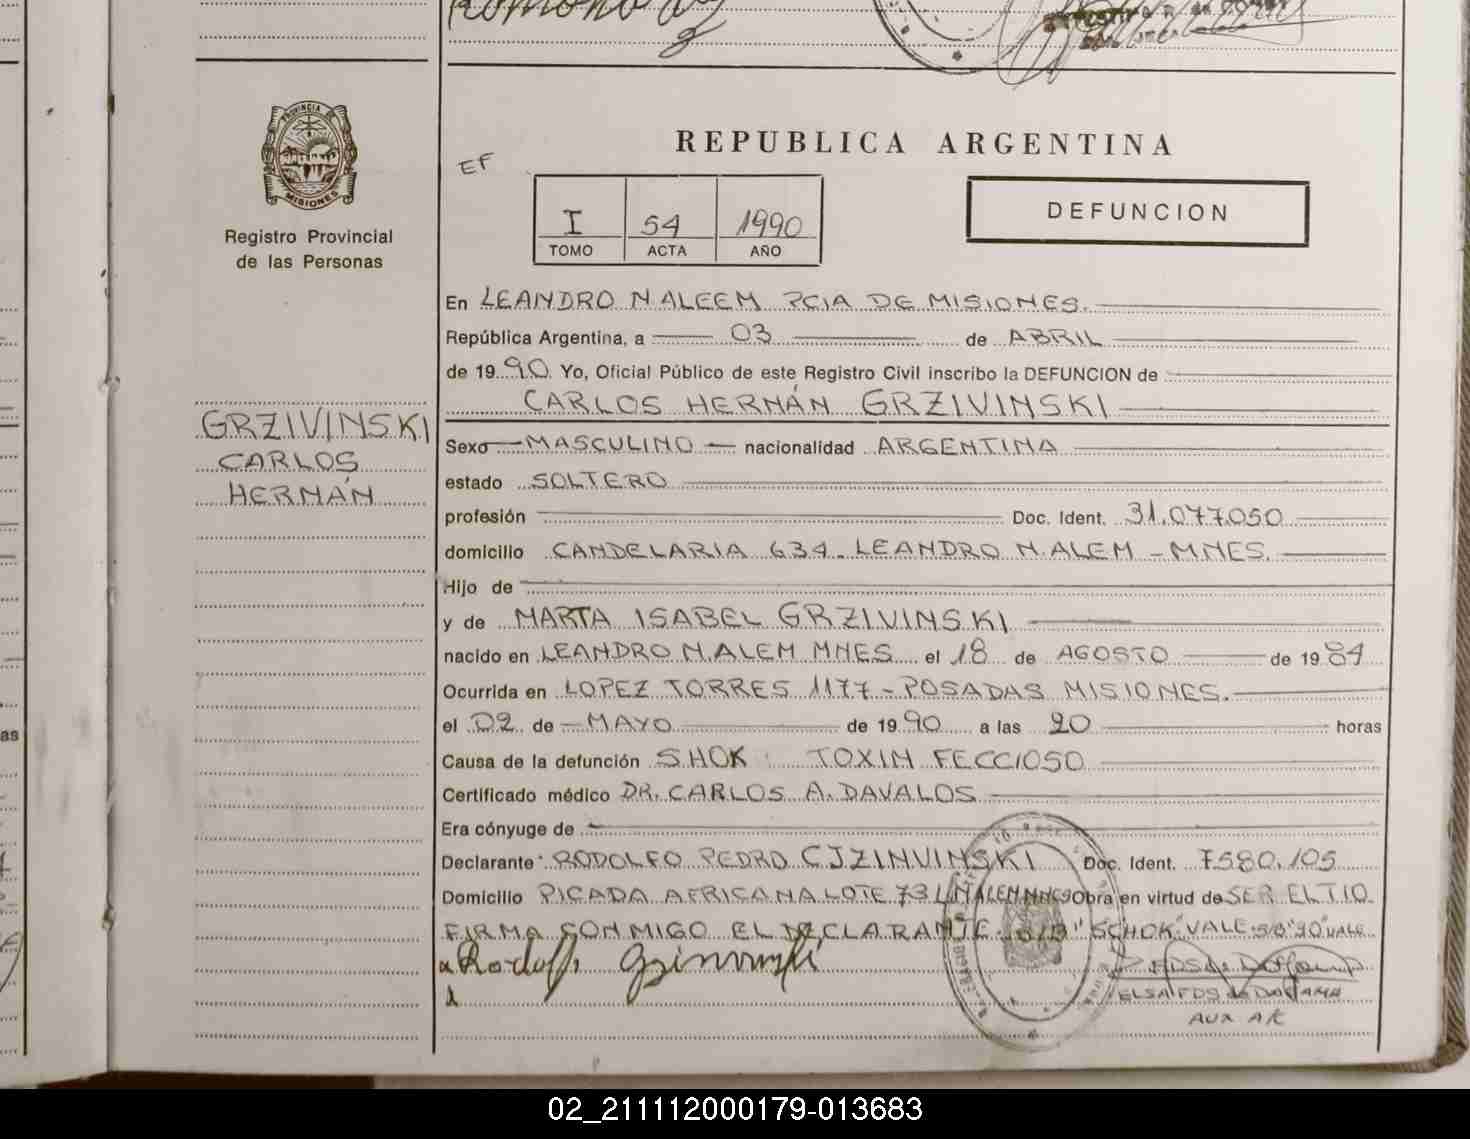 PROVINCIA
MISIONES
Registro Provincial
de las Personas
GRZIVINSKI
CARLOS
HERNÁN
REPUBLICA ARGENTINA
EF
I 54 1990
TOMO ACTA AÑO
DEFUNCION
En LEANDRO N ALEEM PCIA DE MISIONES.
República Argentina, a 03 de ABRIL
de 1990. Yo, Oficial Público de este Registro Civil inscribo la DEFUNCION de
CARLOS HERNÁN GRZIVINSKI
Sexo MASCULINO nacionalidad ARGENTINA
estado SOLTERO
profesión Doc. Ident. 31.077.050
domicilio CANDELARIA 634. LEANDRO N. ALEM - MNES.
Hijo de
y de MARTA ISABEL GRZIVINSKI
nacido en LEANDRO N. ALEM MNES el 18 de AGOSTO de 1984
Ocurrida en LOPEZ TORRES 1177 - POSADAS MISIONES.
el 02 de MAYO de 1990 a las 20 horas
Causa de la defunción SHOK TOXIN FECCIOSO
Certificado médico DR. CARLOS A. DAVALOS
Era cónyuge de
Declarante RODOLFO PEDRO CJZINVINSKI Doc. Ident. 7580.105
Domicilio PICADA AFRICANA LOTE 73 L N ALEM MNES Obra en virtud de SER EL TIO
FIRMA CONMIGO EL DECLARANTE. S/B "SCHOK" VALE: S/B "90" VALE
ELSA FDS de
AUX
02_211112000179-013683